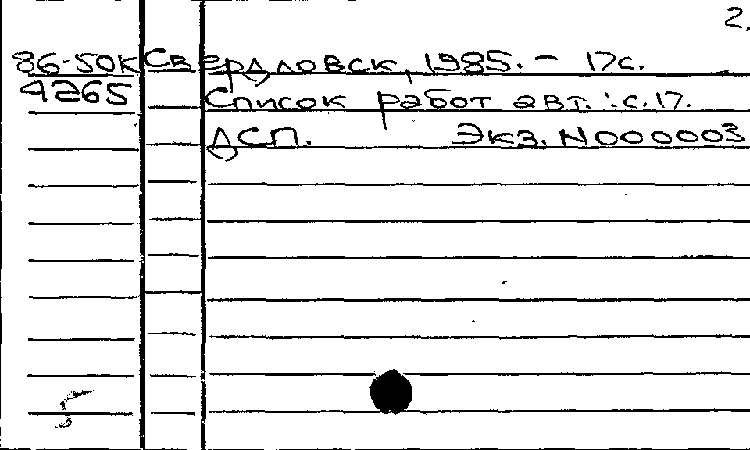 2.
86-50К Свердловск, 1985. - 17с.
4265 Список работ авт.: с.17.
ДСП. Экз. N000003
5